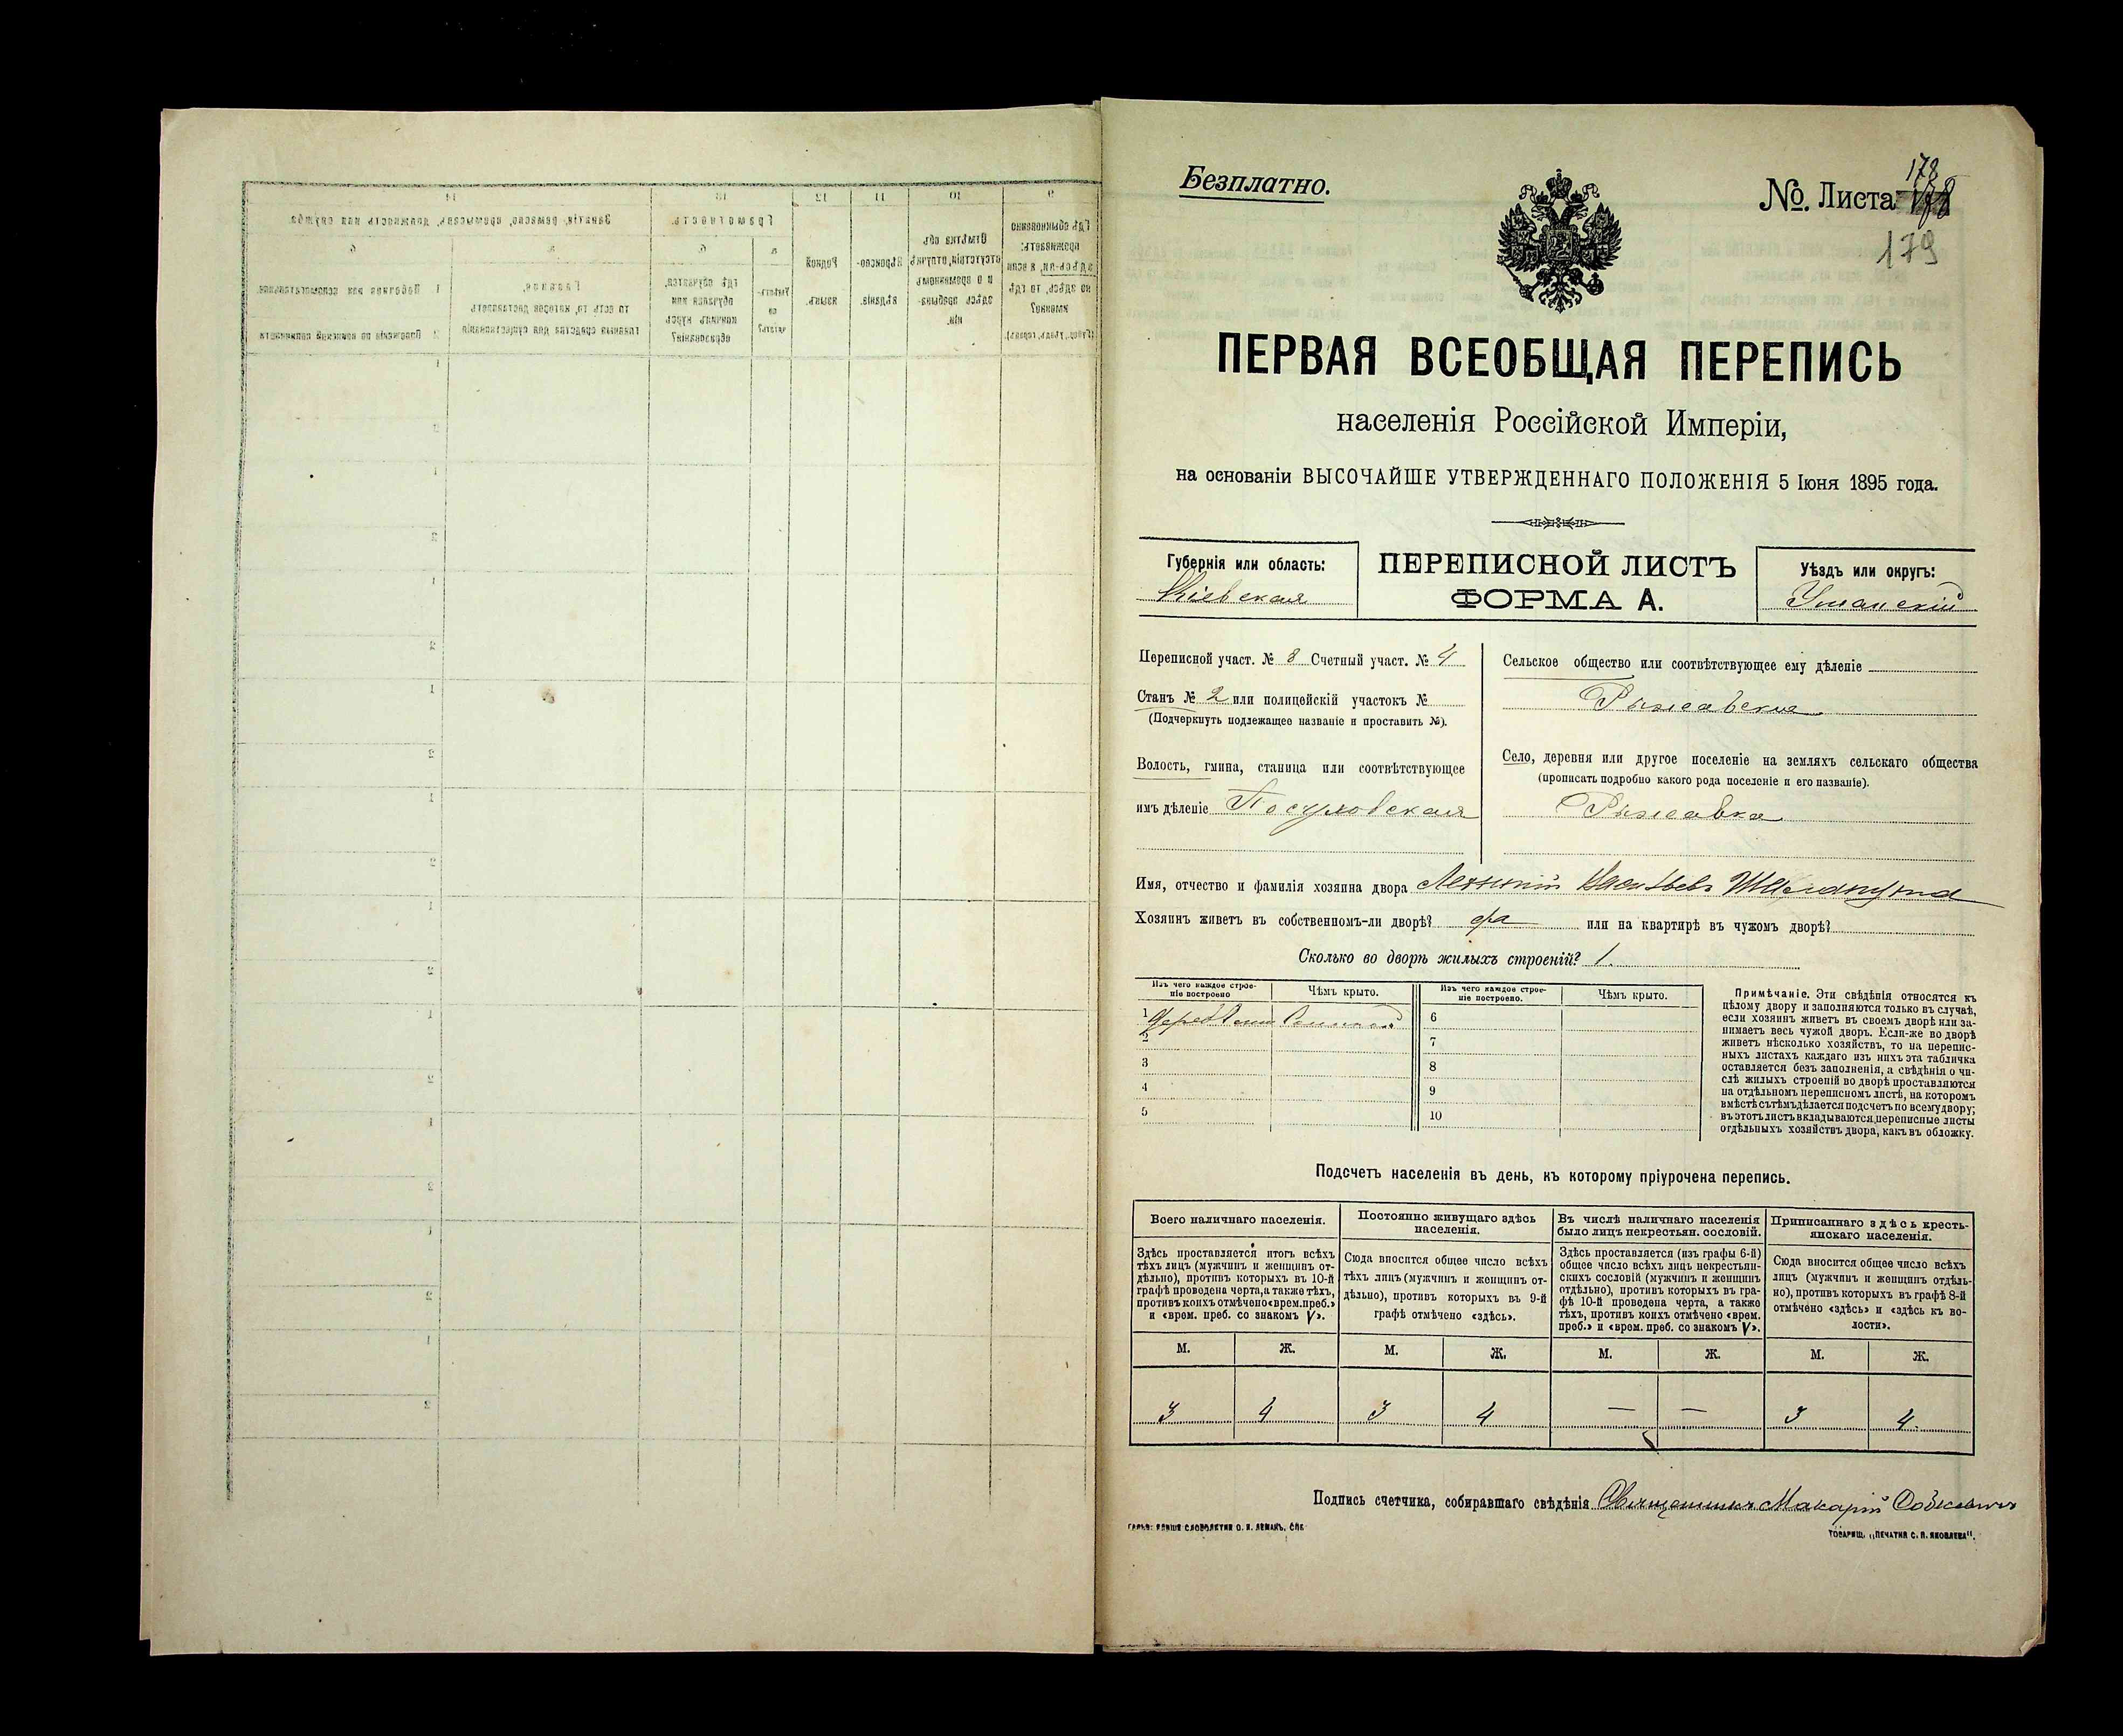 Безплатно.
№. Листа
178
179
ПЕРВАЯ ВСЕОБЩАЯ ПЕРЕПИСЬ
населенія Россійской Имперіи,
на основаніи ВЫСОЧАЙШЕ УТВЕРЖДЕННАГО ПОЛОЖЕНІЯ 5 Іюня 1895 года.
Губернія или область:
Кіевская
ПЕРЕПИСНОЙ ЛИСТЪ
ФОРМА А.
Уѣздъ или округъ:
Уманскій
Переписной участ. № 8 Счетный участ. № 4
Станъ № 2 или полицейскій участокъ №
(Подчеркнуть подлежащее названіе и проставить №).
Волость, гмина, станица или соотвѣтствующее
имъ дѣленіе
Сельское общество или соотвѣтствующее ему дѣленіе
Рыжавское
Село, деревня или другое поселеніе на земляхъ сельскаго общества
(прописать подробно какого рода поселеніе и его названіе).
Рыжавка
Имя, отчество и фамилія хозяина двора
Хозяинъ живетъ въ собственномъ-ли дворѣ? да или на квартирѣ въ чужомъ дворѣ?
Сколько во дворѣ жилыхъ строеній? 1.
Изъ чего каждое строе-
ніе построено
Чѣмъ крыто.
Изъ чего каждое строе-
ніе построено.
Чѣмъ крыто.
1
2
3
4
5
6
7
8
9
10
Примѣчаніе. Эти свѣдѣнія относятся къ
цѣлому двору и заполняются только въ случаѣ,
если хозяинъ живетъ въ своемъ дворѣ или за-
нимаетъ весь чужой дворъ. Если-же во дворѣ
живетъ нѣсколько хозяйствъ, то на перепис-
ныхъ листахъ каждаго изъ нихъ эта табличка
оставляется безъ заполненія, а свѣдѣнія о чи-
слѣ жилыхъ строеній во дворѣ проставляются
на отдѣльномъ переписномъ листѣ, на которомъ
вмѣстѣ съ тѣмъ дѣлается подсчетъ по всему двору;
въ этотъ листъ вкладываются переписные листы
отдѣльныхъ хозяйствъ двора, какъ въ обложку.
Подсчетъ населенія въ день, къ которому пріурочена перепись.
Всего наличнаго населенія.
Здѣсь проставляется итогъ всѣхъ
тѣхъ лицъ (мужчинъ и женщинъ от-
дѣльно), противъ которыхъ въ 10-й
графѣ проведена черта, а также тѣхъ,
противъ коихъ отмѣчено «врем. преб.»
и «врем. преб. со знакомъ V».
Постоянно живущаго здѣсь
населенія.
Сюда вносится общее число всѣхъ
тѣхъ лицъ (мужчинъ и женщинъ от-
дѣльно), противъ которыхъ въ 9-й
графѣ отмѣчено «здѣсь».
Въ числѣ наличнаго населенія
было лицъ некрестьян. сословій.
Здѣсь проставляется (изъ графы 6-й)
общее число всѣхъ лицъ некрестьян-
скихъ сословій (мужчинъ и женщинъ
отдѣльно), противъ которыхъ въ гра-
фѣ 10-й проведена черта, а также
тѣхъ, противъ коихъ отмѣчено «врем.
преб.» и «врем. преб. со знакомъ V».
Приписаннаго здѣсь кресть-
янскаго населенія.
Сюда вносится общее число всѣхъ
лицъ (мужчинъ и женщинъ отдѣль-
но), противъ которыхъ въ графѣ 8-й
отмѣчено «здѣсь» и «здѣсь къ во-
лости».
М. Ж. М. Ж. М. Ж. М. Ж.
3 4 3 4 — — 3 4.
Подпись счетчика, собиравшаго свѣдѣнія Священникъ Макарій
ТОВАРИЩ. „ПЕЧАТНЯ С. П. ЯКОВЛЕВА".